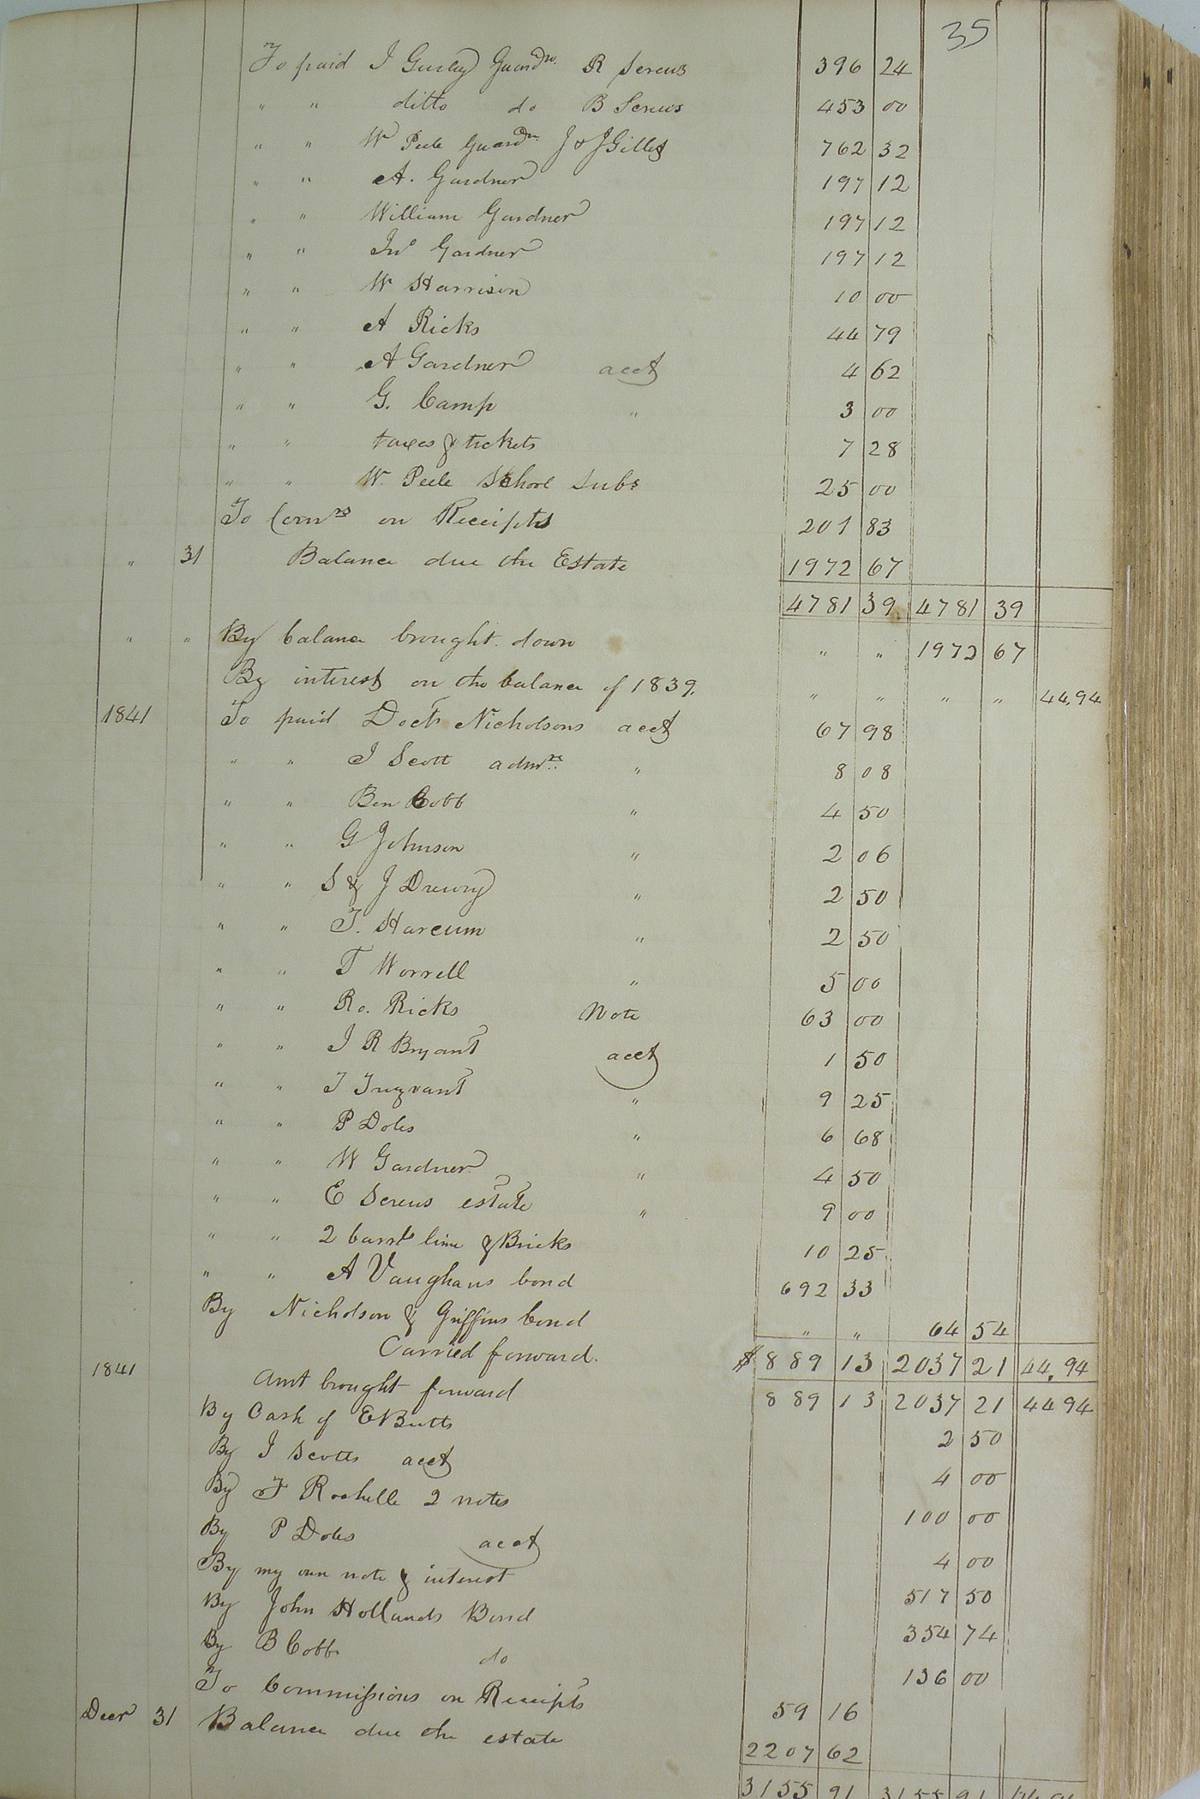 35
To paid J Gurley Guardn. R Screws 396 24
" " ditto do B Screws 453 00
" " W Pule Guardn. J & J Gilles 762 32
" " A. Gardner 197 12
" " William Gardner 197 12
" " Jno Gardner 197 12
" " W Harrison 10 00
" " A Ricks 44 79
" " A Gardner acct 4 62
" " G. Camp " 3 00
" " taxes & tickets 7 28
" " W. Pule School Subs 25 00
To Comns on Receipts 201 83
" 31 Balance due the Estate 1972 67
4781 39 4781 39
" " By balance brought down " " 1972 67
By interest on the balance of 1839. " " " " 44,94
1841 To paid Doctr Nicholsons acct 67 98
" " J Scott admrs " 8 08
" " Ben Cobb " 4 50
" " G Johnson " 2 06
" " S & J Drewry " 2 50
" " T. Harcum " 2 50
" " T Worrell " 5 00
" " Ro. Ricks Note 63 00
" " J R Bryant acct 1 50
" " T " 9 25
" " P Doles " 6 68
" " W Gardner " 4 50
" " E Screws estate " 9 00
" " 2 barrls lime & Bricks 10 25
" " A Vaughans bond 692 33
By Nicholson & Griffins bond " " 64 54
Carried forward. $ 889 13 2037 21 44,94
1841 Amt brought forward 889 13 2037 21 44 94
By Cash of E Butts 2 50
By J Scotts acct 4 00
By J Rochelle 2 notes 100 00
By P Doles acct 4 00
By my own note & interest 517 50
By John Hollands Bond 354 74
By B Cobb do 136 00
To Commissions on Receipts 59 16
Decr 31 Balance due the estate 2207 62
3155 91 3155 91